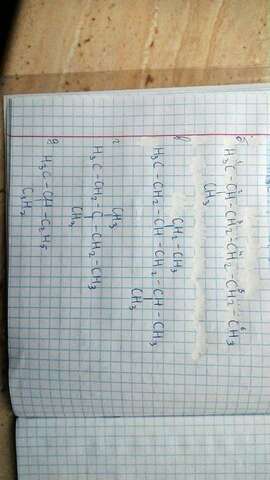 б H₃C¹-CH²-CH₂³-CH₂⁴-CH₂⁵-CH₃⁶
CH₃
в CH₂-CH₃
H₃C-CH₂-CH-CH₂-CH-CH₃
CH₃
г CH₃
H₃C-CH₂-C-CH₂-CH₃
CH₃
д H₃C-CH-C₂H₅